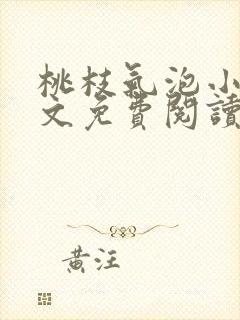 桃枝氣泡小
文免費閱讀
黃汪